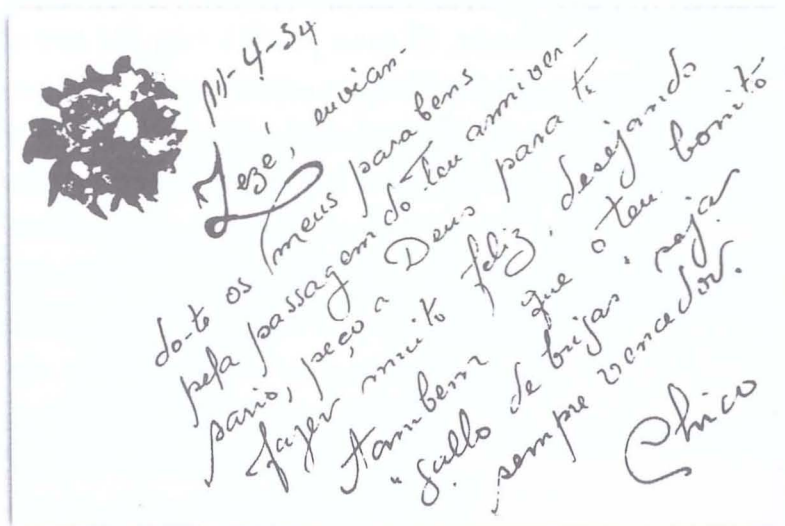 4-34
Zezé, envian-
do-te os meus parabens
pela passagem do teu anniver-
sario, peço a Deus para te
fazer muito feliz, desejando
tambem que o teu bonito
"gallo de brigas", seja
sempre vencedor.
Chico